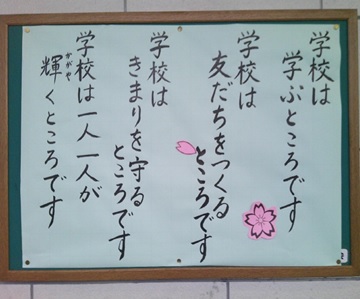 学校は
学ぶところです
学校は
友だちをつくる
ところです
学校は
きまりを守る
ところです
学校は一人一人が
輝くところです
かがや